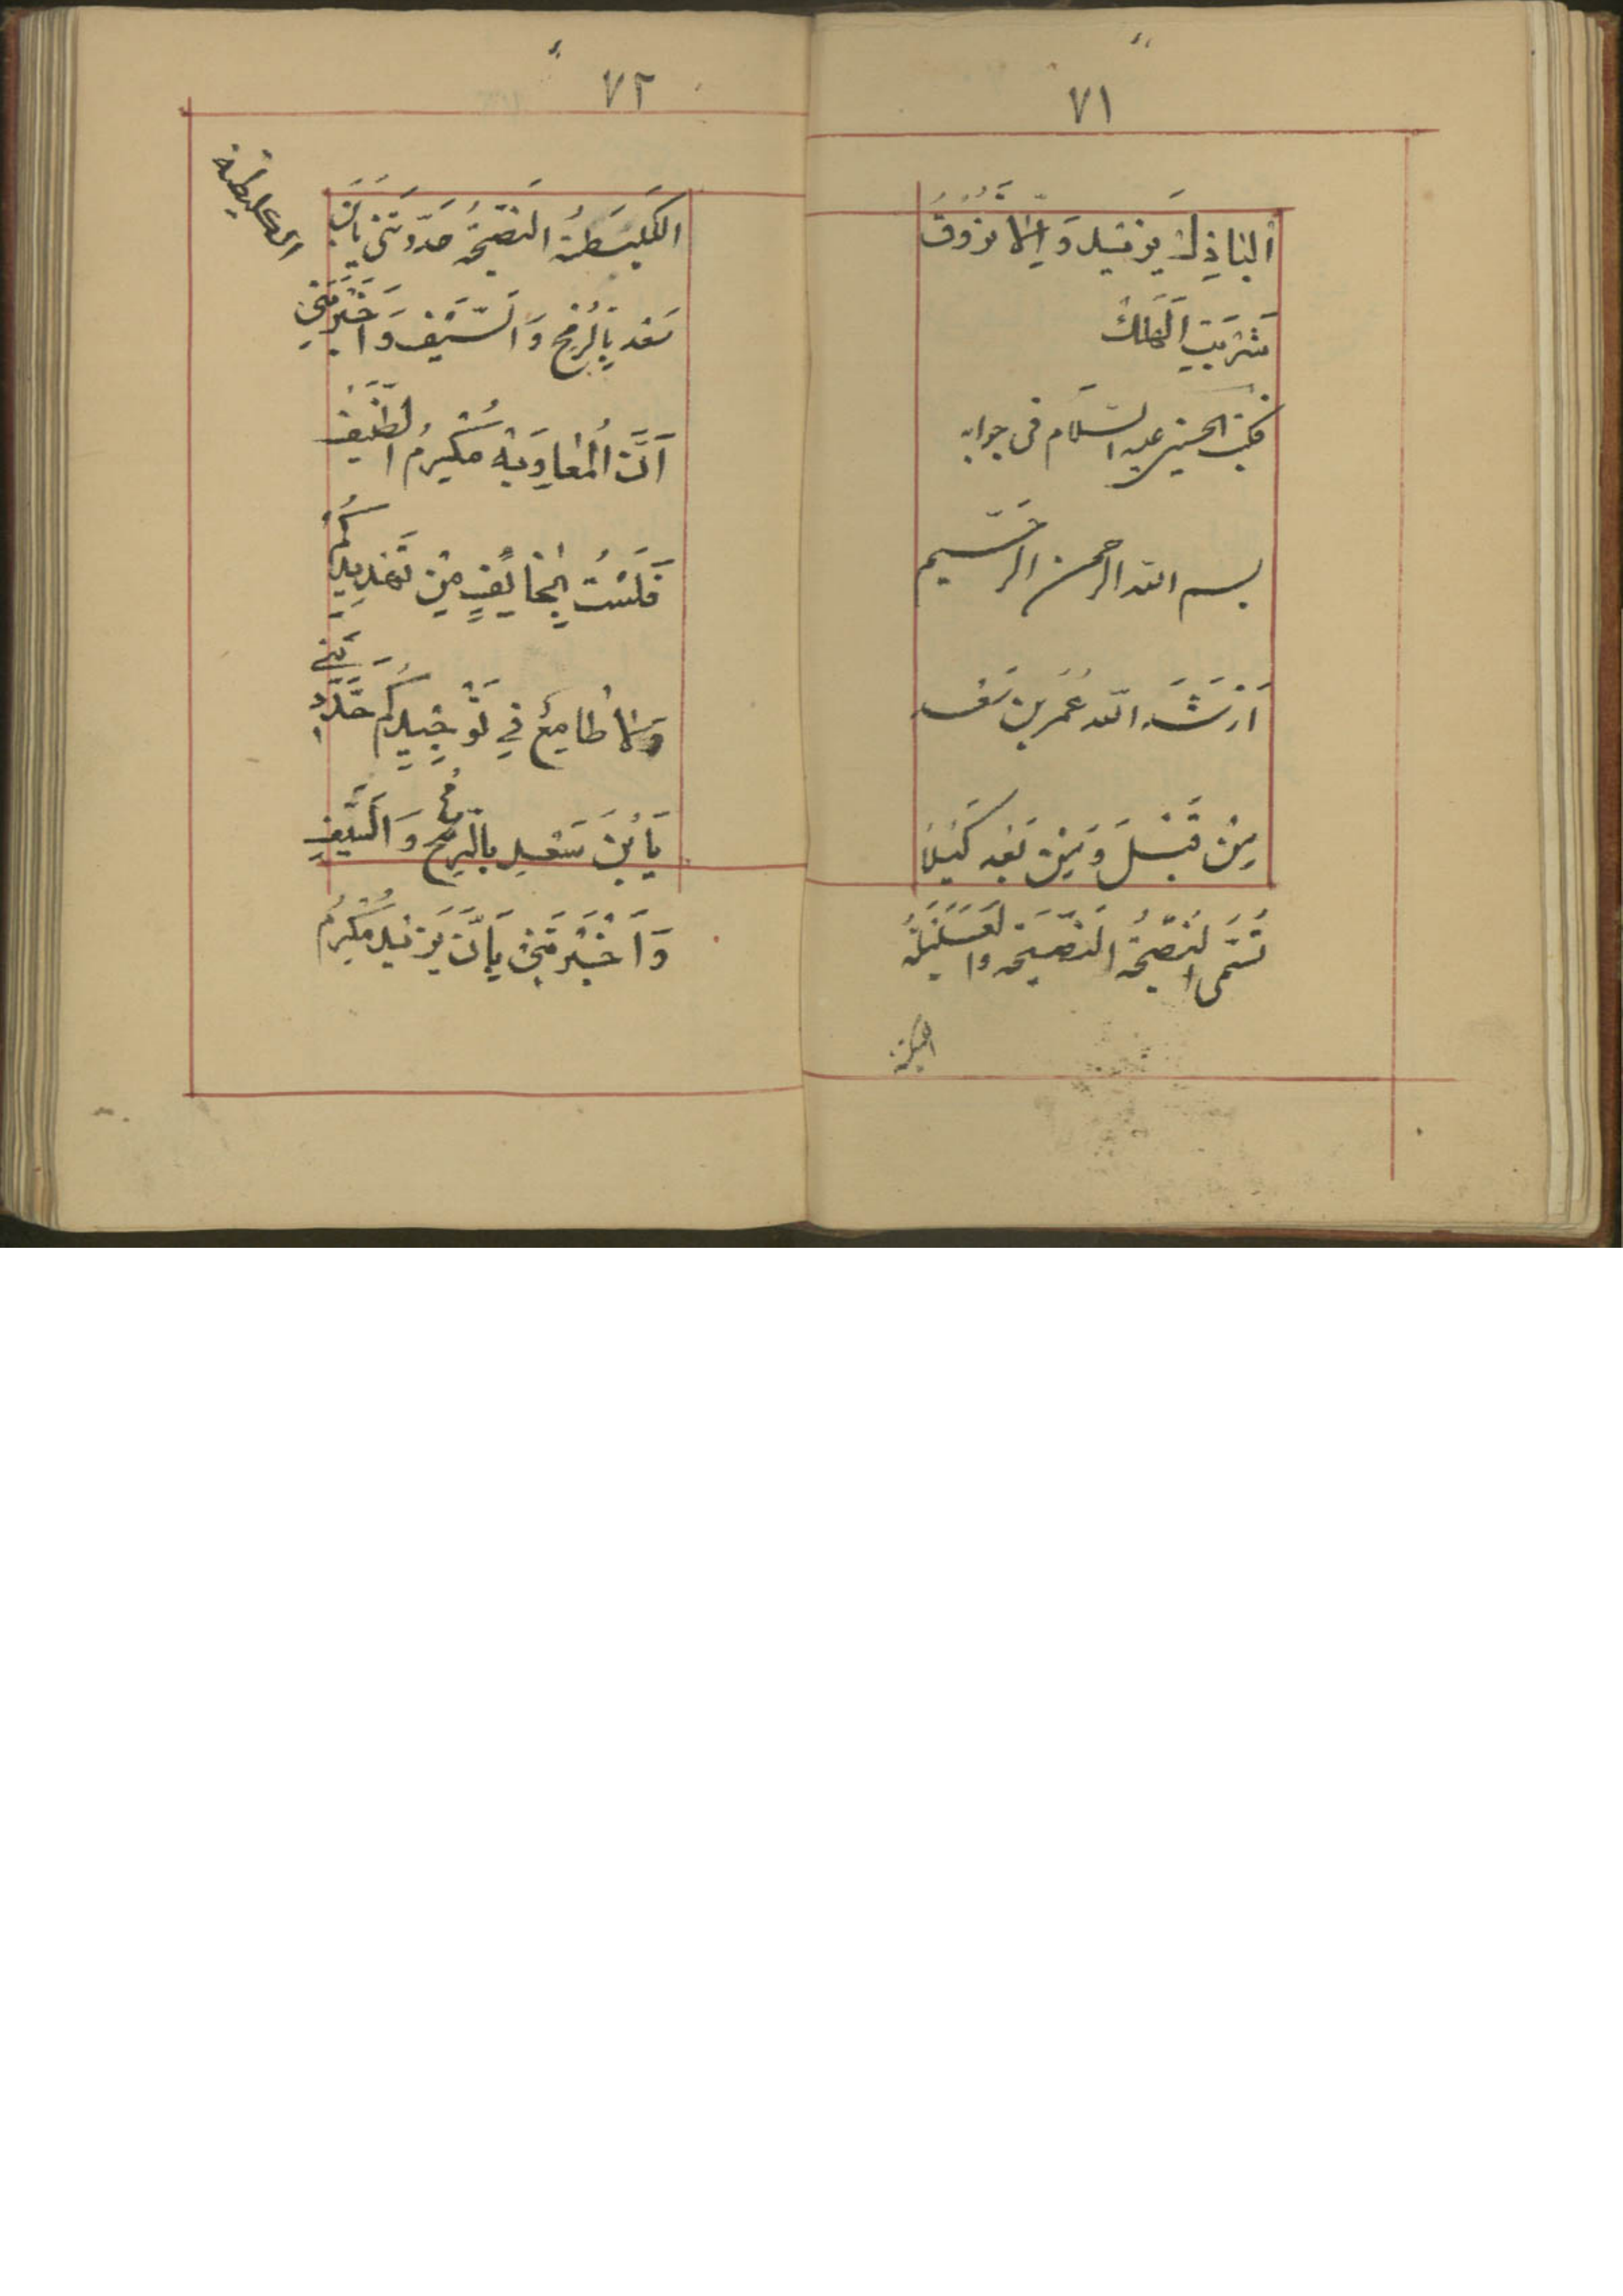 ٧١
اَلْبَاذِلَ يَزِيد وَاِلّا تَذُوقُ
شَرْبَتِ الْهَلَاكْ
فكتب الحسين عليه السّلام فى جوابه
بسم الله الرحمن الرّحيم
اَرْشَدَ الله عُمَربن سَعْد
مِنْ قَبْلَ وَمِنْ بَعْد
تُسَمّى النَّصِيحَةُ النَّصِيحَة
٧٢
النَّصِيحَةُ هَدَّدْتَنِى يَابْنَ
سَعْد بِالرُّمْحِ وَالسَّيْفِ وَاَخْبَرْتَنِى
اَنَّ الْمُعَاوِيَةْ مُكْرِمُ الضَّيْفِ
فَلَسْتُ بِخَائِفٍ مِنْ تَهْدِيدِكُمْ
وَلَا طَامِعٌ فِي تَوْ هَدَّدْتَنِي
يَابْنَ سَعْدٍ بِالرُّمْحِ وَالسَّيْفِ
وَاَخْبَرْتَنِى بِاَنَّ يَزِيدَ مُكْرِمُ